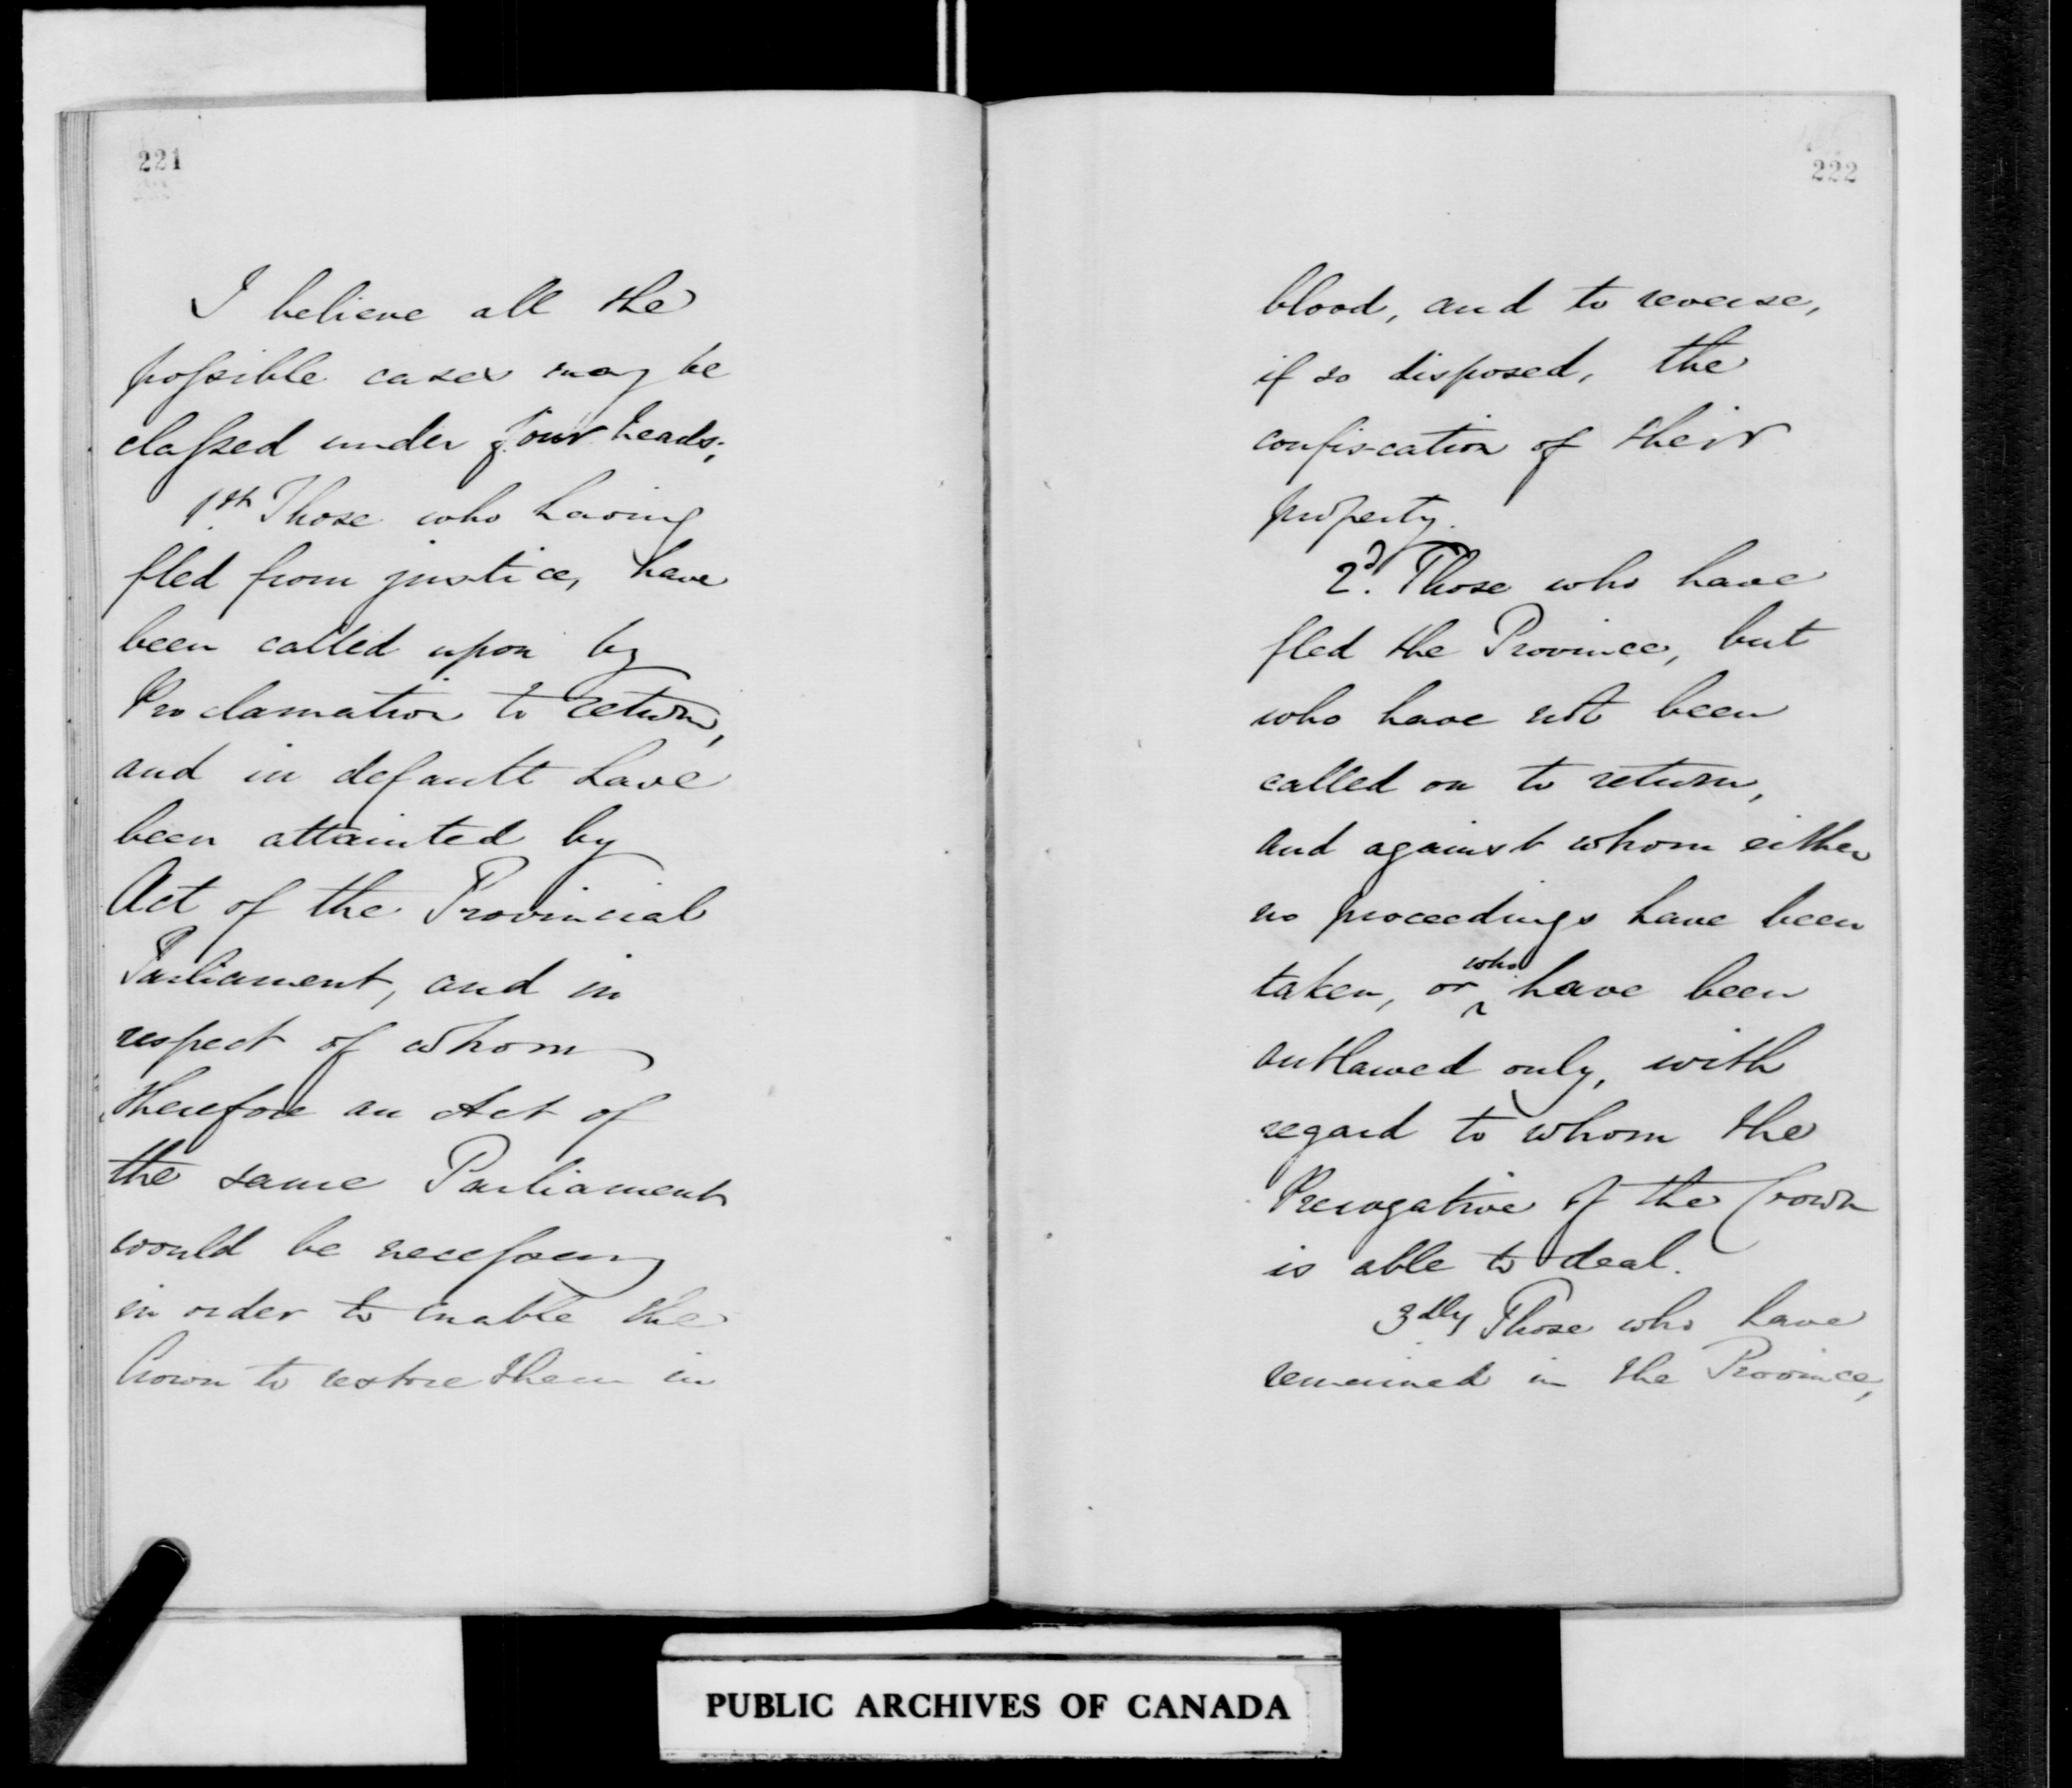 221
I believe all the
possible cases may be
classed under four heads;
1st. Those who having
fled from justice, have
been called upon by
Proclamation to return,
and in default have
been attainted by
Act of the Provincial
Parliament, and in
respect of whom
therefore an Act of
the same Parliament
would be necessary
in order to enable the
Crown to restore them in
222
blood, and to reverse,
if so disposed, the
confis-cation of their
property.
2d. Those who have
fled the Province, but
who have not been
called on to return,
and against whom either
no proceedings have been
taken, or who have been
outlawed only, with
regard to whom the
Prerogative of the Crown
is able to deal.
3dly Those who have
remained in the Province,
PUBLIC ARCHIVES OF CANADA